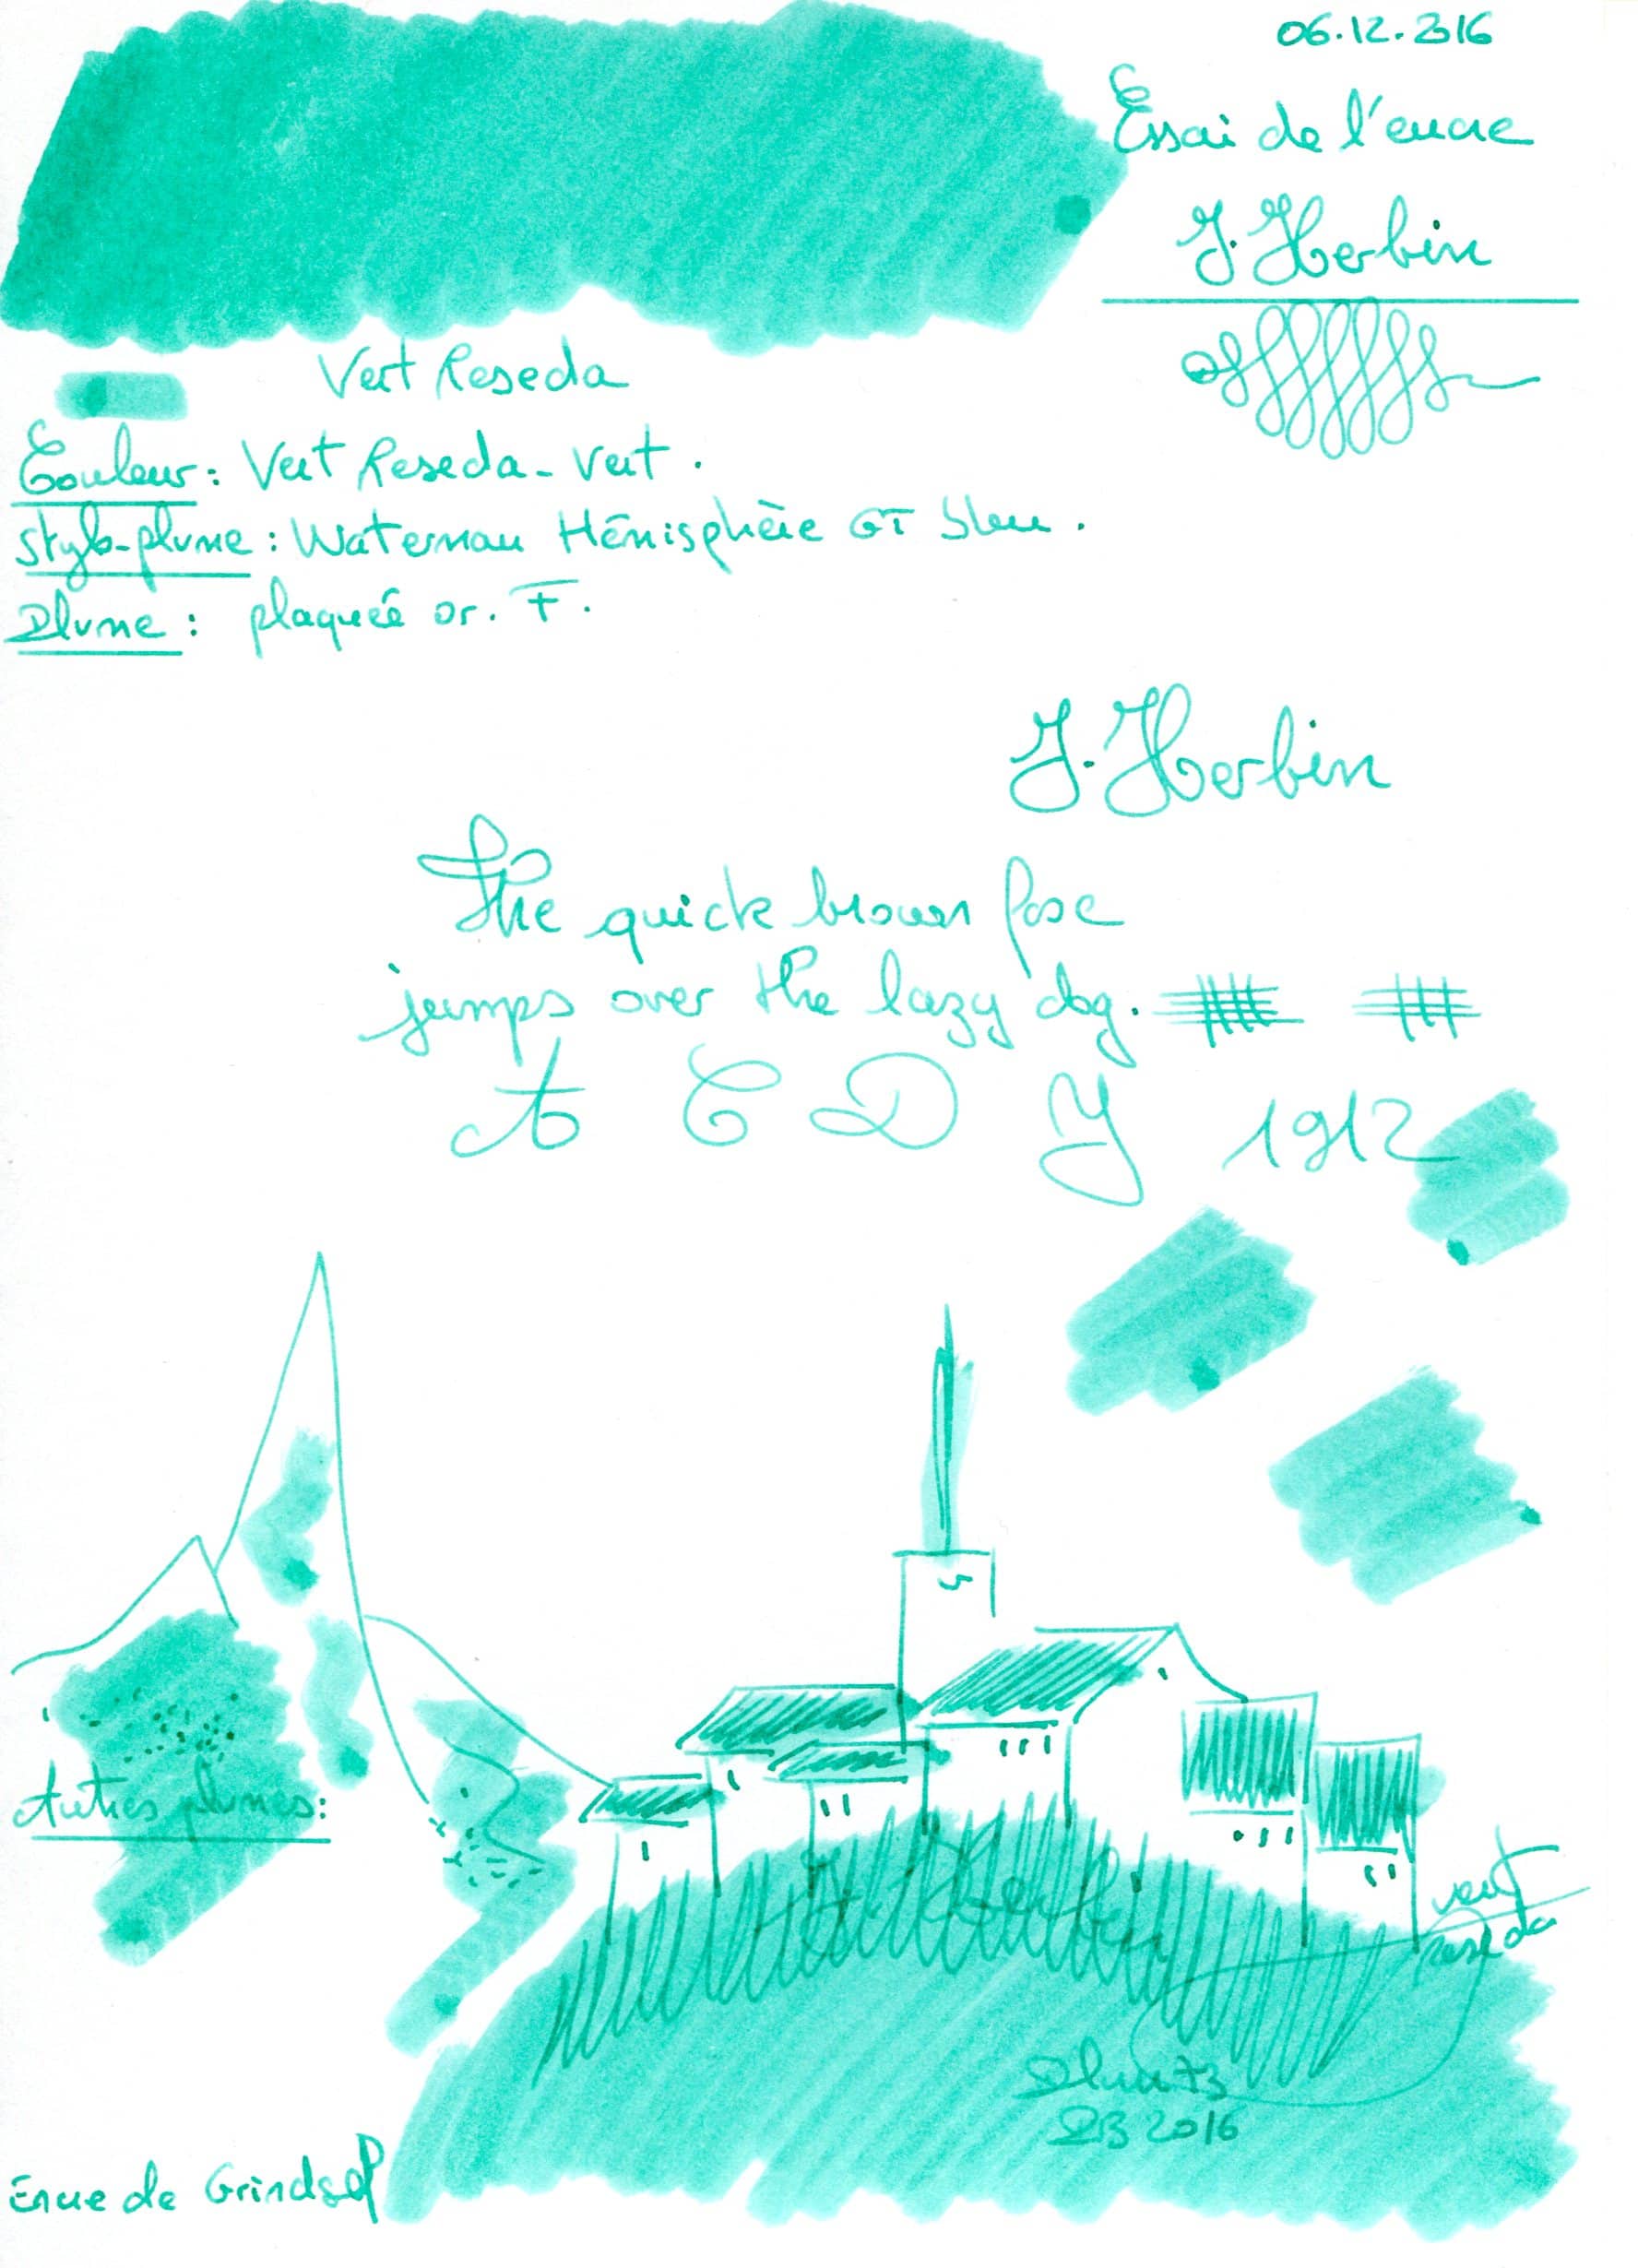 06.12.2016
Essai de l'encre
J. Herbin
Vert Reseda
Couleur : Vert Reseda - Vert .
Stylo-plume : Waterman Hémisphère GT bleu .
Plume : plaquée or. F.
J. Herbin
The quick brown fox
jumps over the lazy dog.
A C D J 1912
Autres plumes :
vert
reseda
2016
Encre de